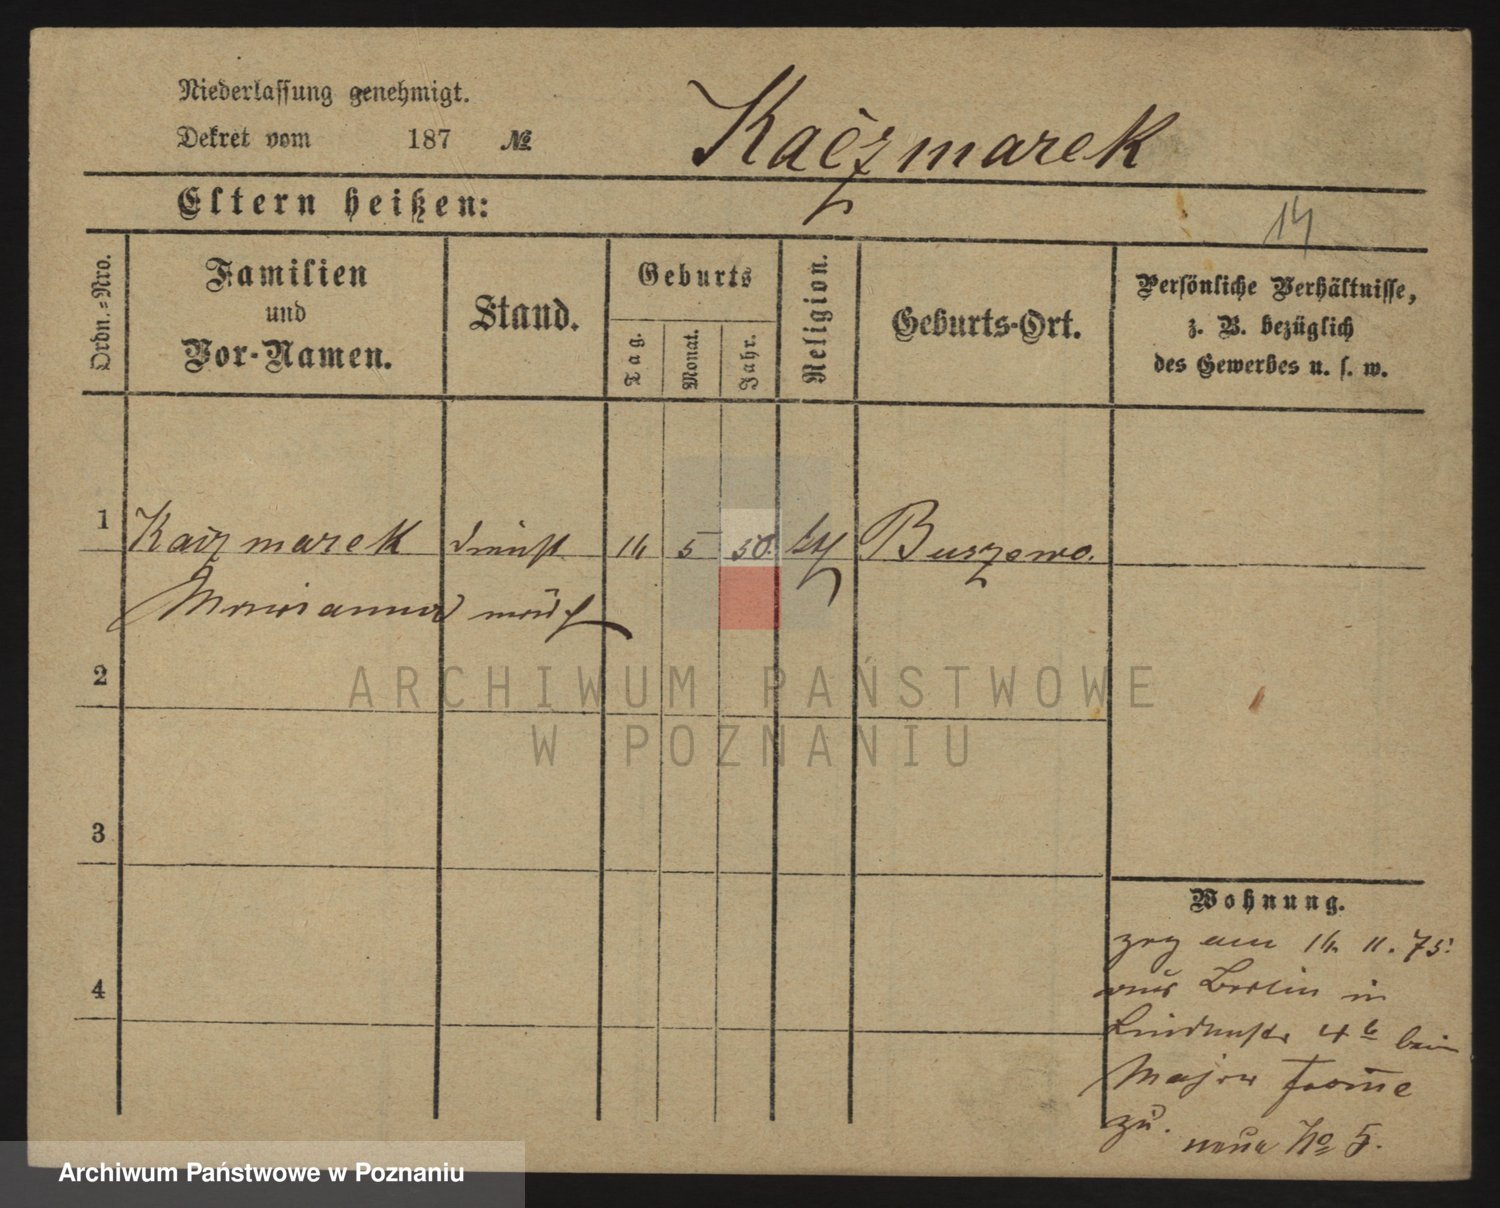 Niederlassung genehmigt.
Dekret vom 187 №
Kaczmarek
Eltern heißen:
14
Ordn.=Nro.
Familien
und
Vor-Namen.
Stand.
Geburts
Tag.
Monat.
Jahr.
Religion.
Geburts-Ort.
Persönliche Verhältnisse,
z. B. bezüglich
des Gewerbes u. s. w.
1
Kaczmarek dienst 14 5 50. kth Buszewo.
Marianna mädch
2
3
4
Wohnung.
zog am 14. 11. 75.
aus Berlin in
Lindenstr 4 b beim
Major
zu.
neue No 5.
ARCHIWUM PAŃSTWOWE
W POZNANIU
Archiwum Państwowe w Poznaniu